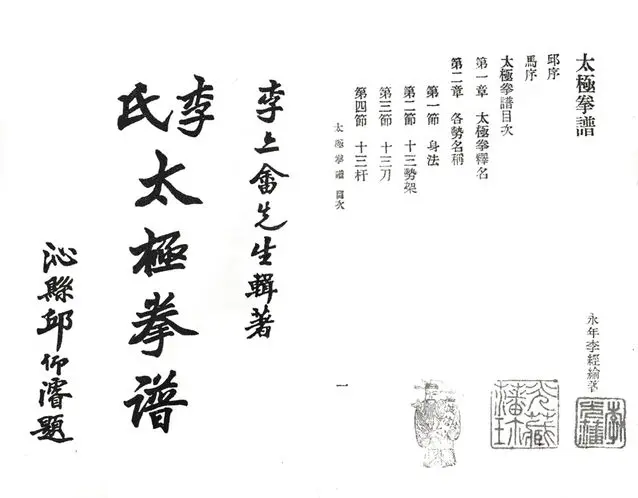 太極拳譜
永年李經綸著
邱序
馬序
太極拳譜目次
第一章 太極拳釋名
第二章 各勢名稱
第一節 身法
第二節 十三勢架
第三節 十三刀
第四節 十三杆
太極拳譜 目次
一
李亦畬先生輯著
李氏太極拳譜
沁縣邱仰濬題